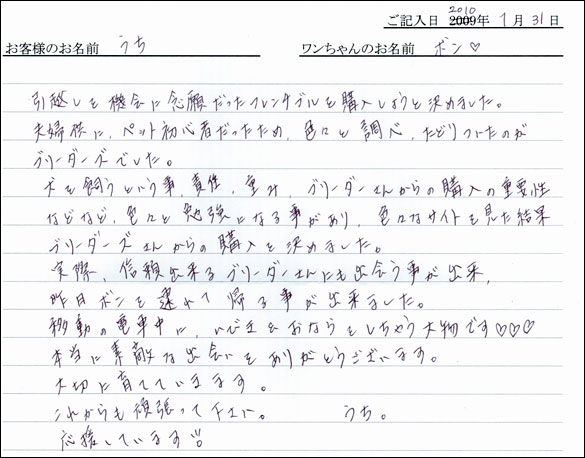 2010
ご記入日 2009年 1月 31日
お客様のお名前 うち ワンちゃんのお名前 ボン♡
引越しを機会に念願だったフレンチブルを購入しようと決めました。
夫婦供に、ペット初心者だったため、色々と調べ、たどりついたのが
ブリーダーズでした。
犬を飼うという事、責任、重み、ブリーダーさんからの購入の重要性
などなど、色々と勉強になる事があり、色々なサイトを見た結果
ブリーダーズさんからの購入を決めました。
実際、信頼出来るブリーダーさんにも出会う事が出来、
昨日ボンを連れて帰る事が出来ました。
移動の電車中に、いびき&おならをしちゃう大物です♡♡♡
本当に素敵な出会いをありがとうございます。
大切に育てていきます。
これからも頑張って下さい。 うち。
応援しています!!